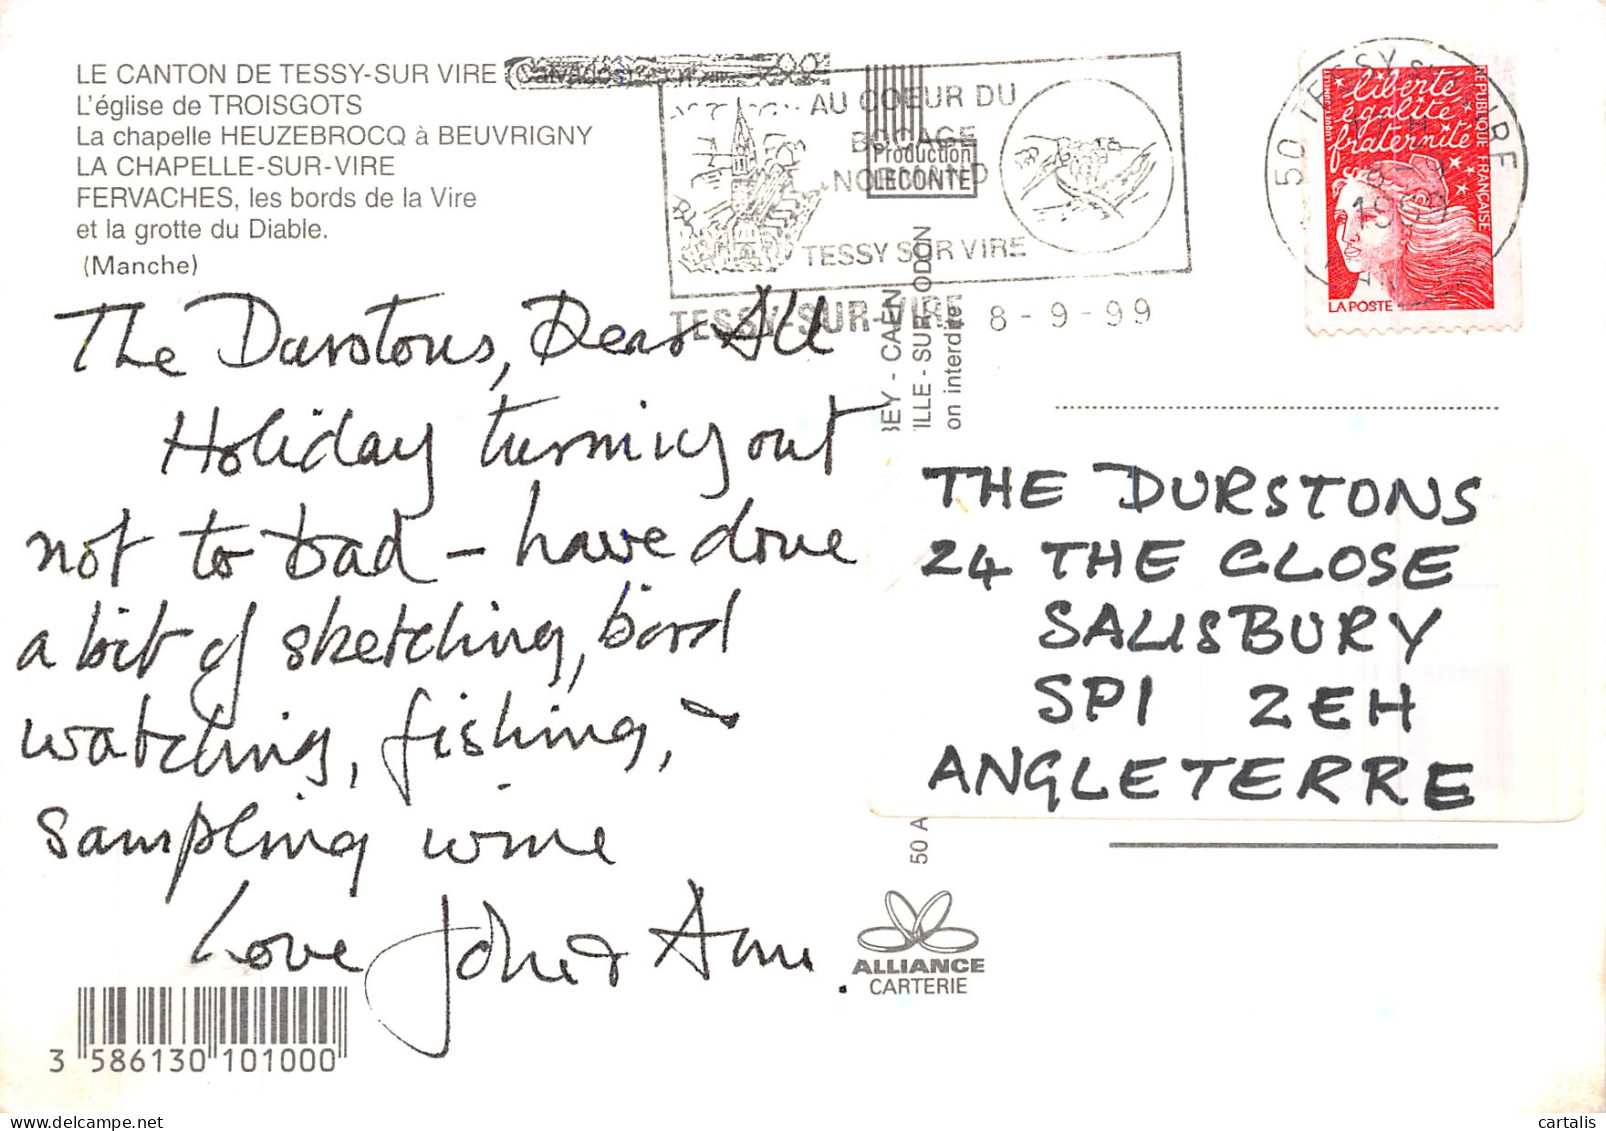 LE CANTON DE TESSY-SUR VIRE (Calvados)
L'église de TROISGOTS
La chapelle HEUZEBROCQ à BEUVRIGNY
LA CHAPELLE-SUR-VIRE
FERVACHES, les bords de la Vire
et la grotte du Diable.
(Manche)
AU COEUR DU
BOCAGE
NORMAND
TESSY SUR VIRE
Production
LECONTE
TESSY-SUR-VIRE 8-9-99
50 TESSY S/ VIRE
liberté
égalité
fraternité
REPUBLIQUE FRANÇAISE
LA POSTE
BEY - CAEN
VILLE - SUR ODON
on interdite
The Durstons, Dear All
Holiday turning out
not to bad - have done
a bit of sketching, bird
watching, fishing, &
sampling wine
Love John & Ann.
THE DURSTONS
24 THE CLOSE
SALISBURY
SP1 2EH
ANGLETERRE
50 A
ALLIANCE
CARTERIE
3 586130 101000
cartalis